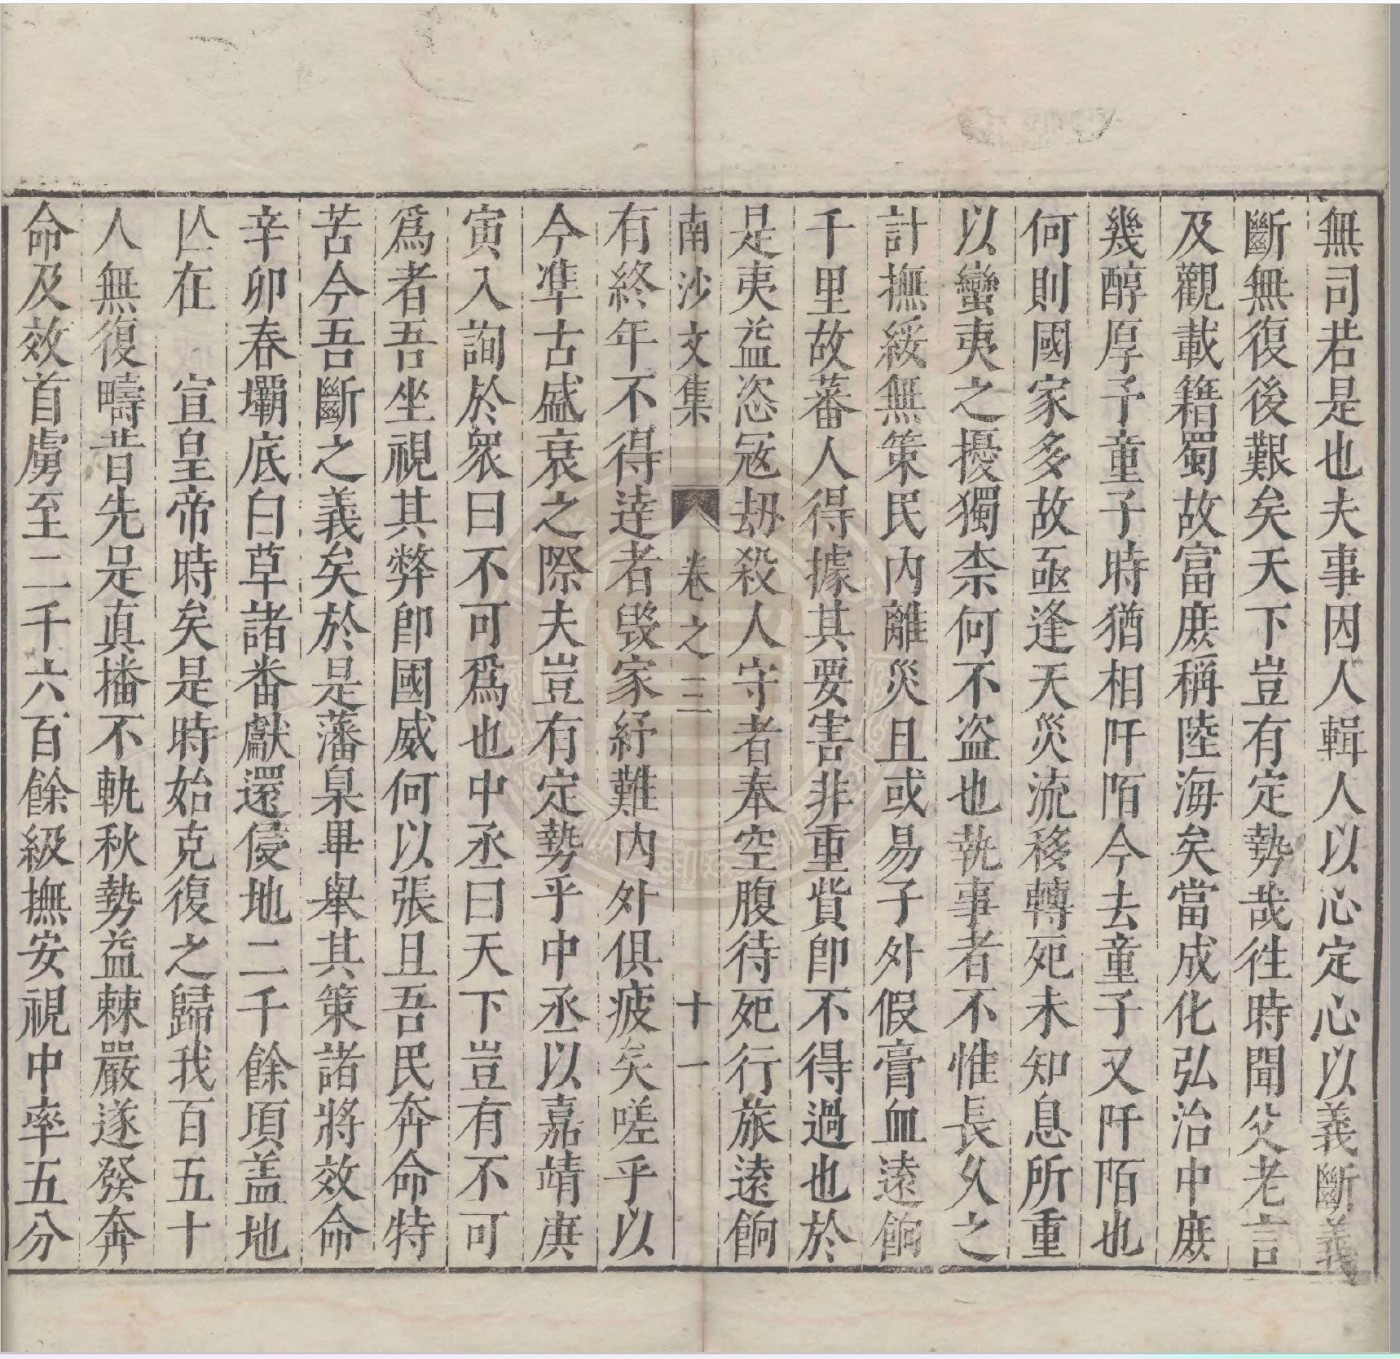 無司若是也夫事因人輯人以心定心以義斷義
斷無復後艱矣天下豈有定勢哉往時聞父老言
及觀載籍蜀故富庶稱陸海矣當成化弘治中庶
幾醇厚予童子時猶相阡陌今去童子又阡陌也
何則國家多故亟逢天災流移轉死未知息所重
以蠻夷之擾獨柰何不盜也執事者不惟長久之
計撫綏無策民內離災且或易子外假膏血遠餉
千里故蕃人得據其要害非重貲即不得過也於
是夷益恣冦刼殺人守者奉空腹待死行旅遠餉
南沙文集 卷之三 十一
有終年不得達者毀家紓難內外俱疲矣嗟乎以
今準古盛衰之際夫豈有定勢乎中丞以嘉靖庚
寅入詢於衆曰不可爲也中丞曰天下豈有不可
爲者吾坐視其弊即國威何以張且吾民奔命特
苦今吾斷之義矣於是藩臬畢舉其策諸將效命
辛卯春壩底白草諸番獻還侵地二千餘項盖地
亾在 宣皇帝時矣是時始克復之歸我百五十
人無復疇昔先是真播不軌秋勢益棘嚴遂發奔
命及效首虜至二千六百餘級撫安視中率五分